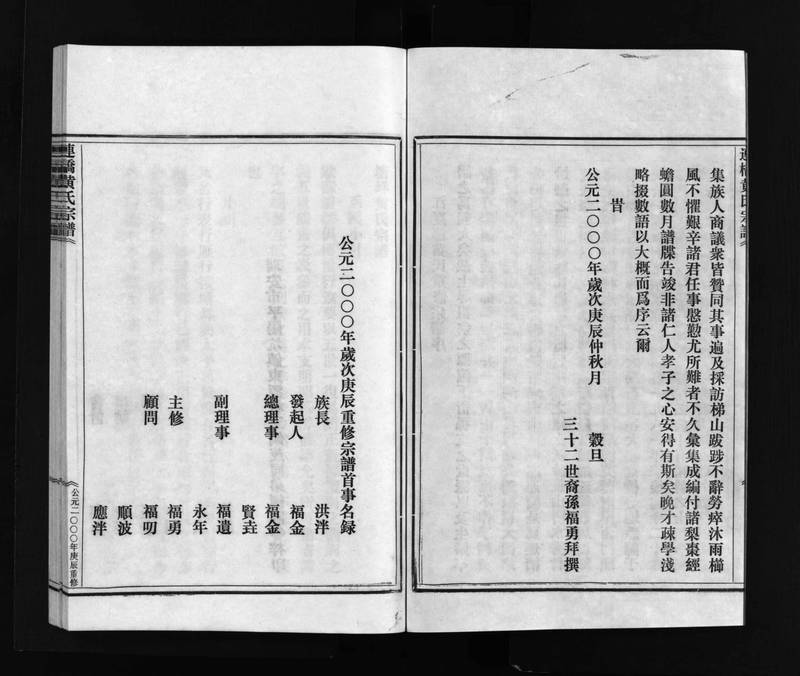 集族人商議衆皆贊同其事遍及採訪梯山跋踄不辭勞瘁沐雨櫛
風不懼艱辛諸君任事慇懃尤所難者不久彙集成編付諸梨棗經
蟾圓數月譜牒告竣非諸仁人孝子之心安得有斯矣晚才疎學淺
略掇數語以大概而爲序云爾
旹
公元二〇〇〇年歲次庚辰仲秋月 穀旦
三十二世裔孫福勇拜撰
公元二〇〇〇年歲次庚辰重修宗譜首事名録
族長 洪泮
發起人 福金
總理事 福金
賢垚
副理事 福遺
永年
主修 福勇
顧問 福叨
順波
應泮
連橋黄氏宗譜
公元二〇〇〇年庚辰重修